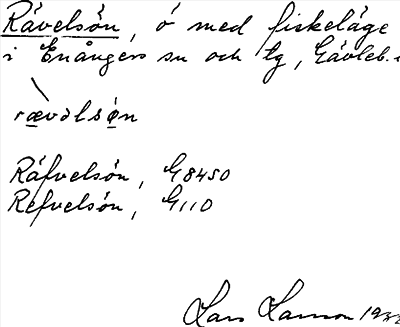 Rävelsön, ö med fiskeläge
i Enångers sn och tg, Gävleb.
rævəlsøn
Räfvelsön, G8450
Refvelsön, G110
Lars Larsson